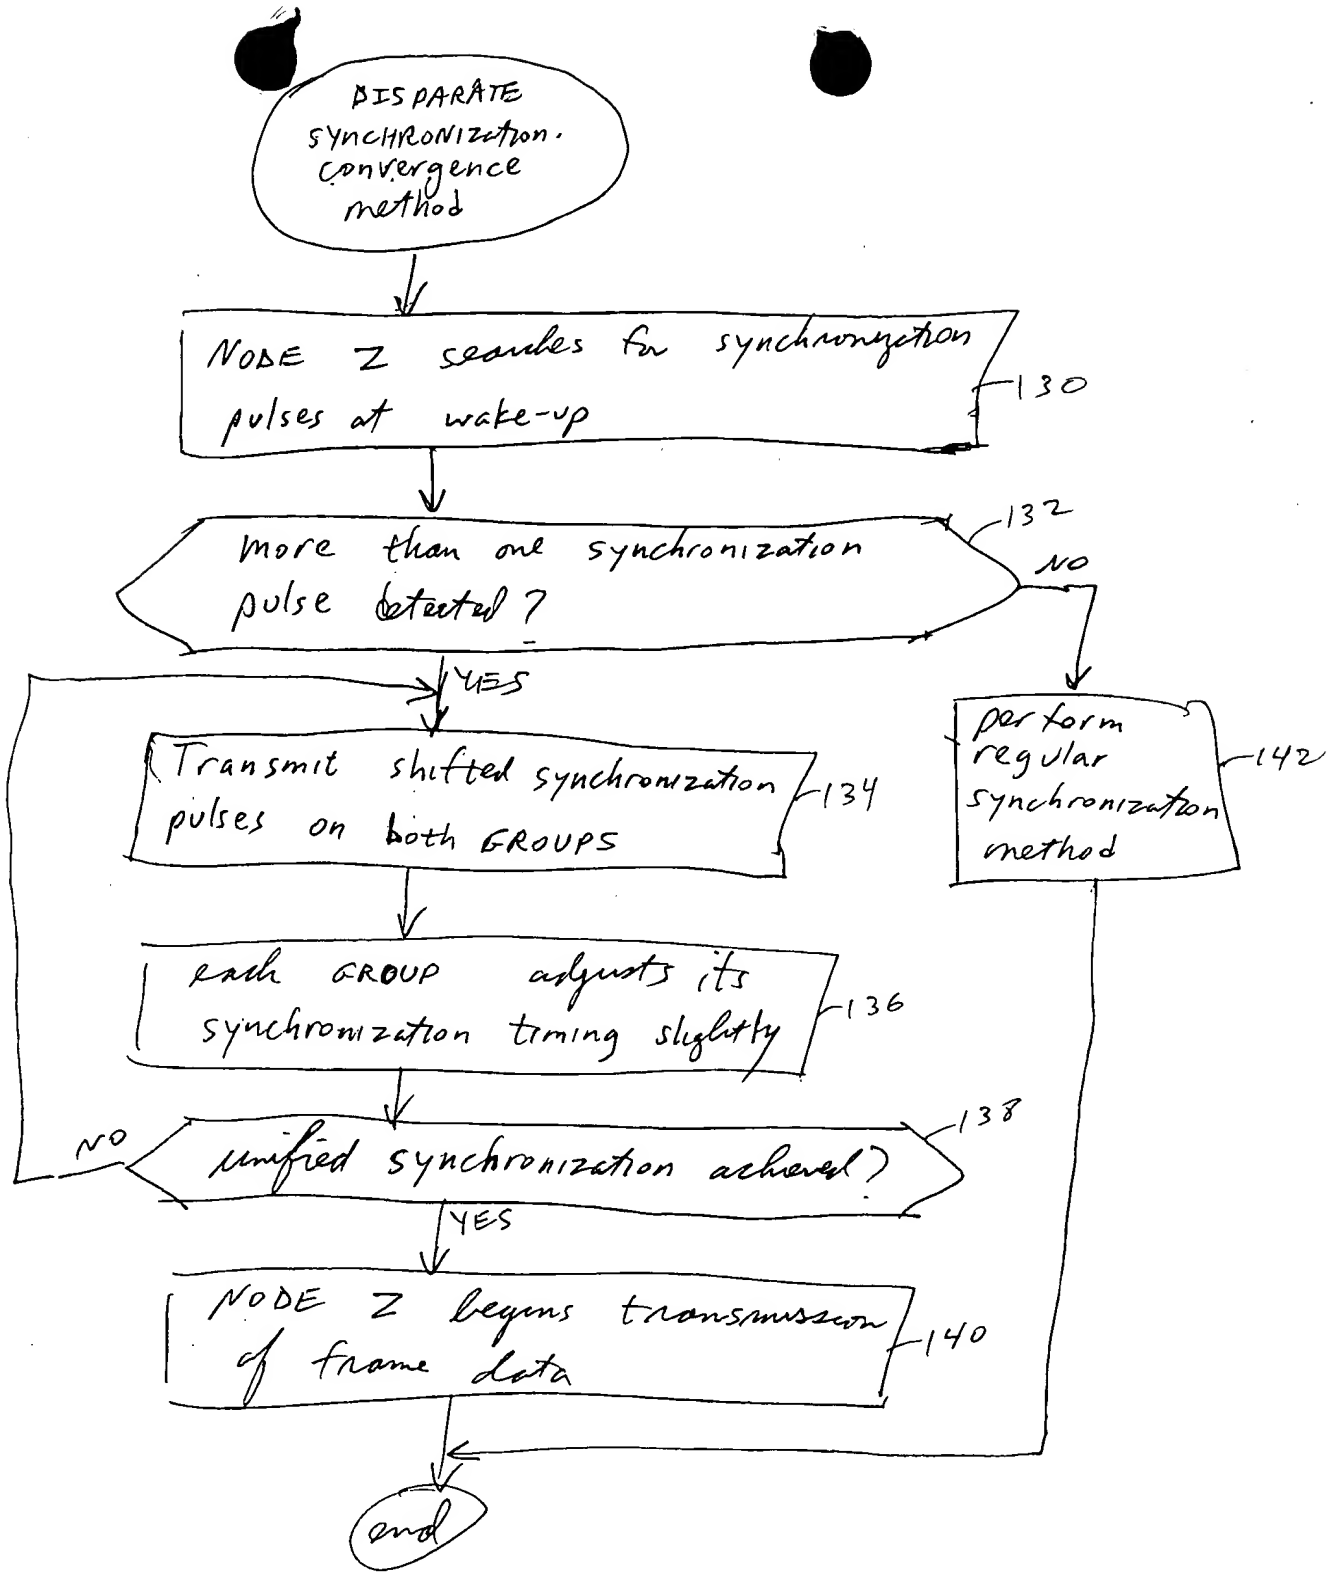 DISPARATE
SYNCHRONIZation
convergence
method
NODE Z searches for synchronization
pulses at wake-up
130
more than one synchronization
pulse detected?
132
NO
YES
perform
regular
synchronization
method
142
Transmit shifted synchronization
pulses on both GROUPS
134
each GROUP adjusts its
synchronization timing slightly
136
unified synchronization achieved?
138
NO
YES
NODE Z begins transmission
of frame data
140
end